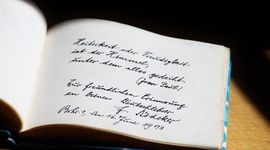 Heiterkeit oder Freudigkeit
ist der Himmel,
unter dem alles gedeiht.
(Jean Paul)
Zur freundlichen Erinnerung
an Deinen
F.
Juni 1978